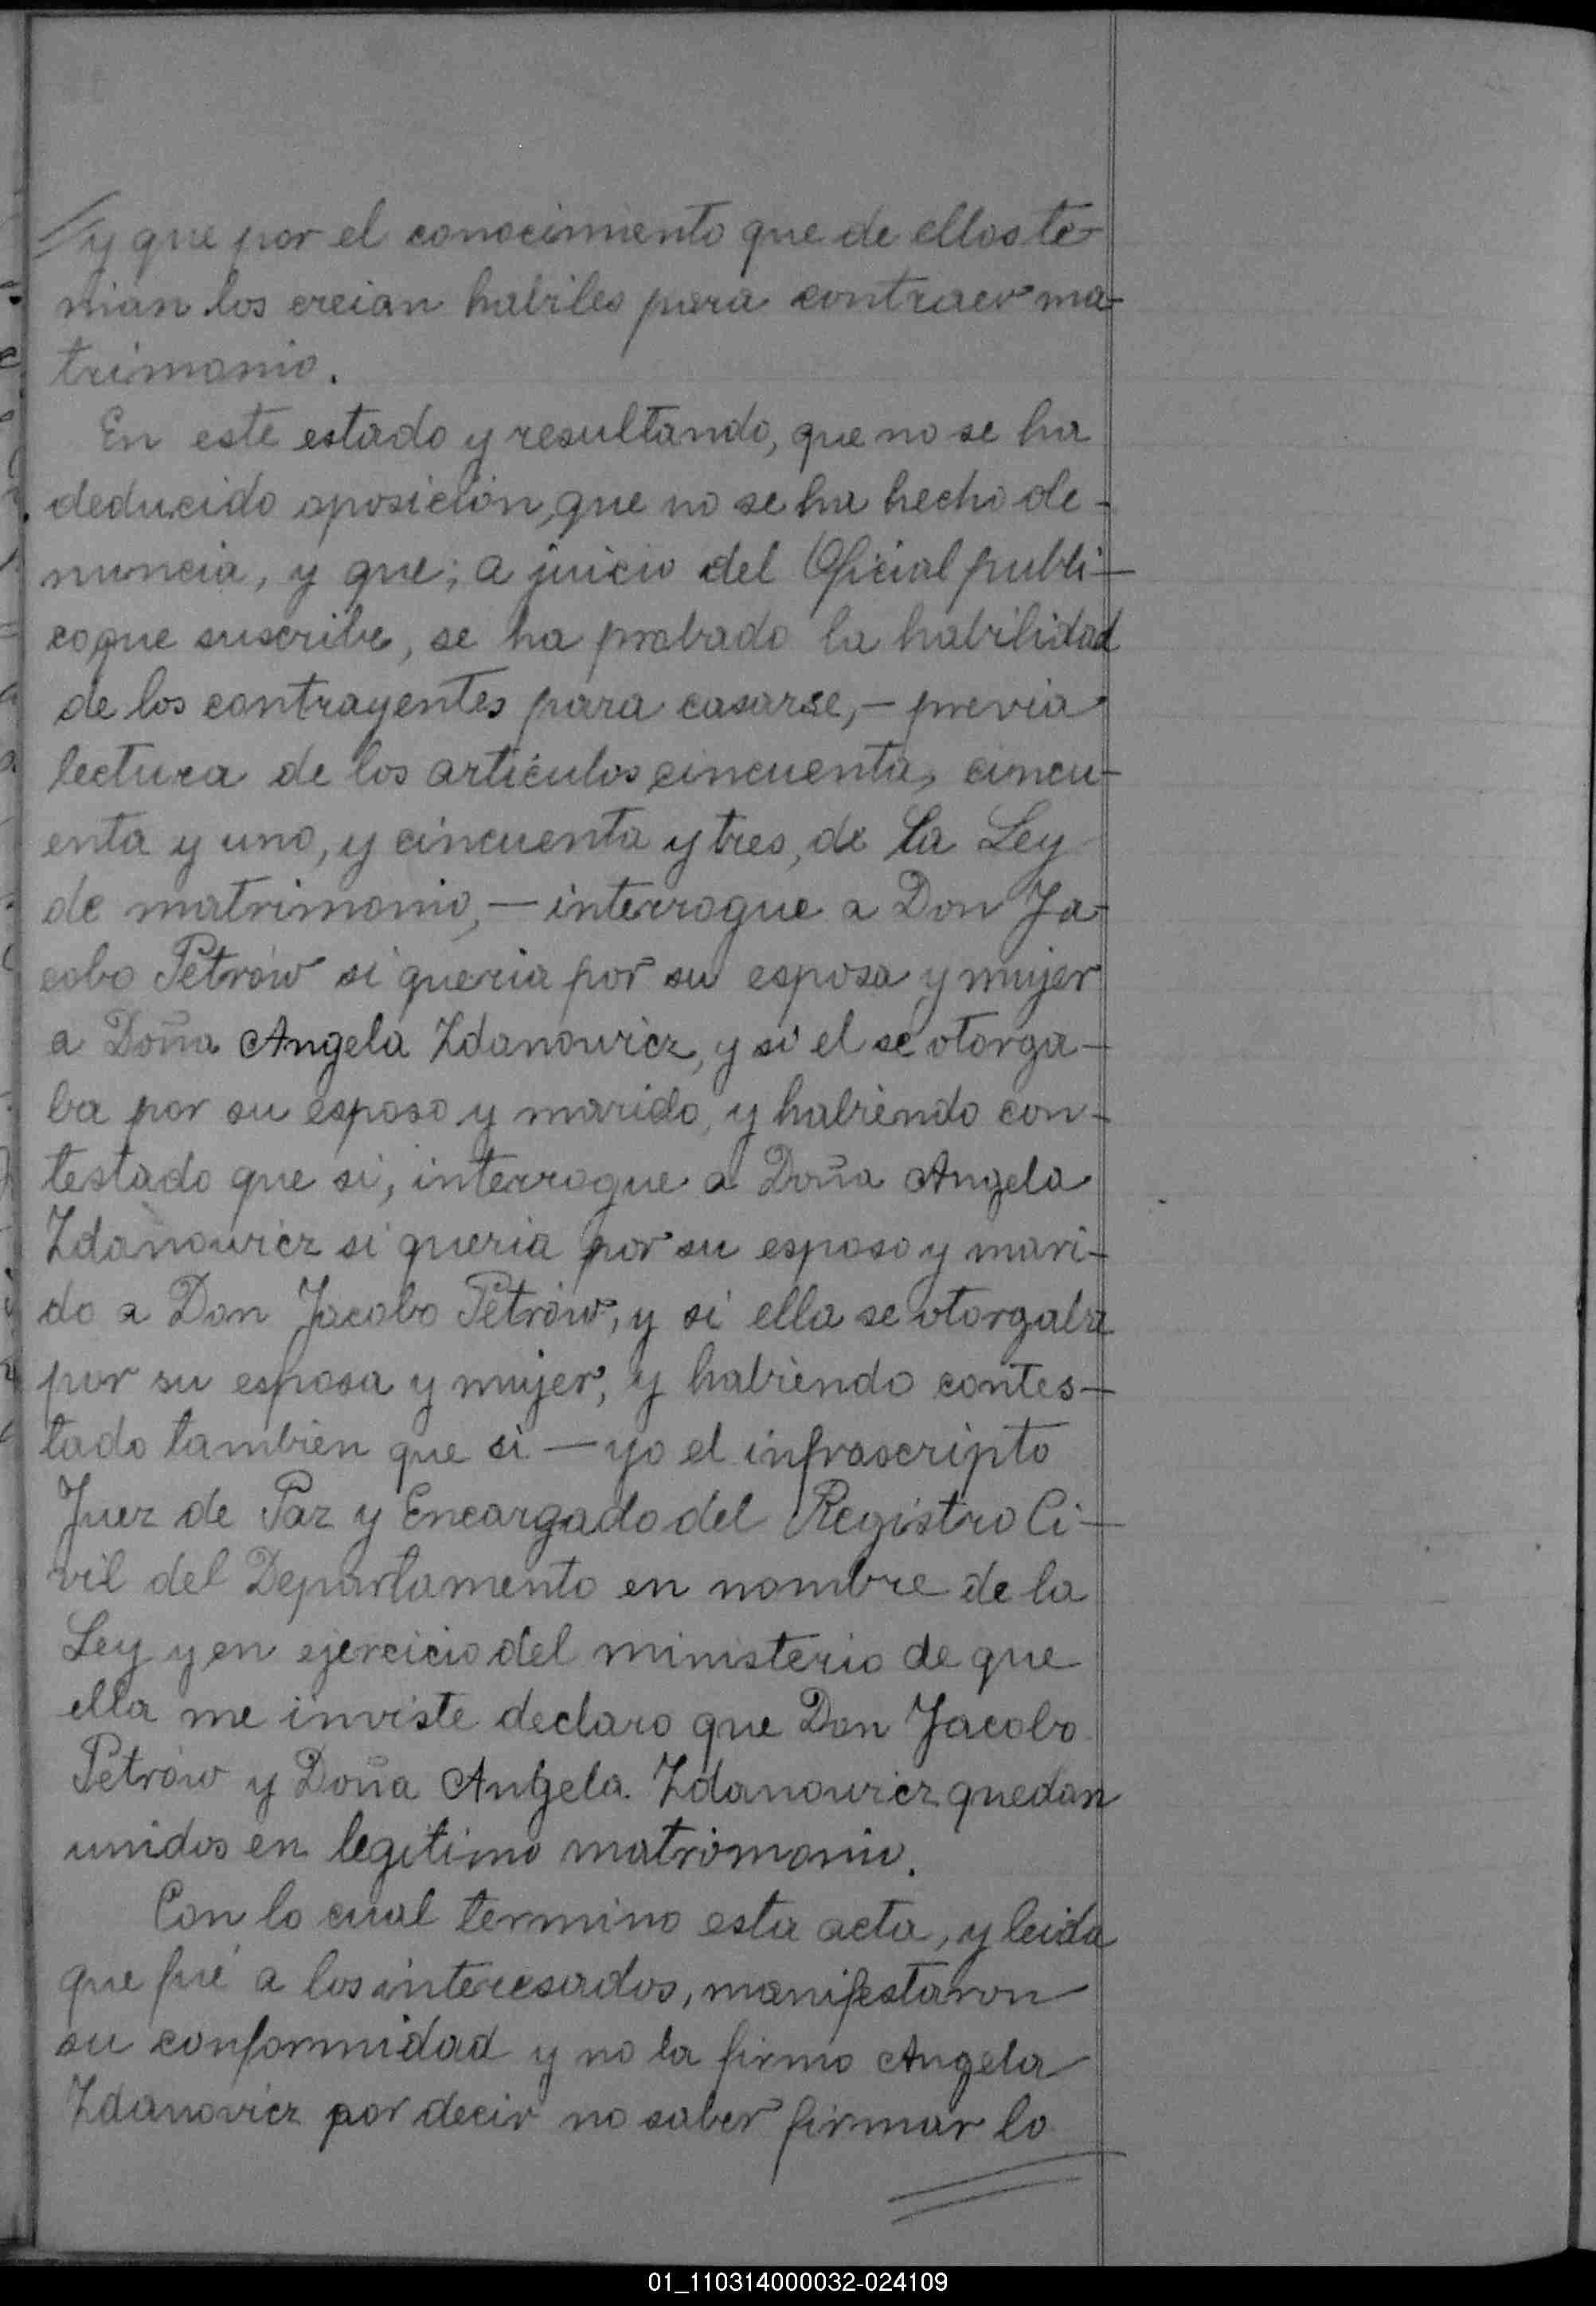 y que por el conocimiento que de ellos te-
nian los creian habiles para contraer ma-
trimonio.
En este estado y resultando, que no se ha
deducido oposición, que no se ha hecho de-
nuncia, y que; a juicio del Oficial publi-
co que suscribe, se ha probado la habilidad
de los contrayentes para casarse,- previa
lectura de los articulos cincuenta, cincu-
enta y uno, y cincuenta y tres, de la Ley
de matrimonio, - interrogue a Don Ja-
cobo Petrów si queria por su esposa y mujer
a Doña Angela Zdanowicz, y si el se otorga-
ba por su esposo y marido, y habiendo con-
testado que si, interrogue a Doña Angela
Zdanowicz si queria por su esposo y mari-
do a Don Jacobo Petrów, y si ella se otorgaba
por su esposa y mujer, y habiendo contes-
tado tambien que si - yo el infrascripto
Juez de Paz y Encargado del Registro Ci-
vil del Departamento en nombre de la
Ley y en ejercicio del ministerio de que
ella me inviste declaro que Don Jacobo
Petrów y Doña Angela Zdanowicz quedan
unidos en legitimo matrimonio.
Con lo cual termino esta acta, y leida
que fué a los interesados, manifestaron
su conformidad y no la firmo Angela
Zdanovicz por decir no saber firmar lo
01_110314000032-024109